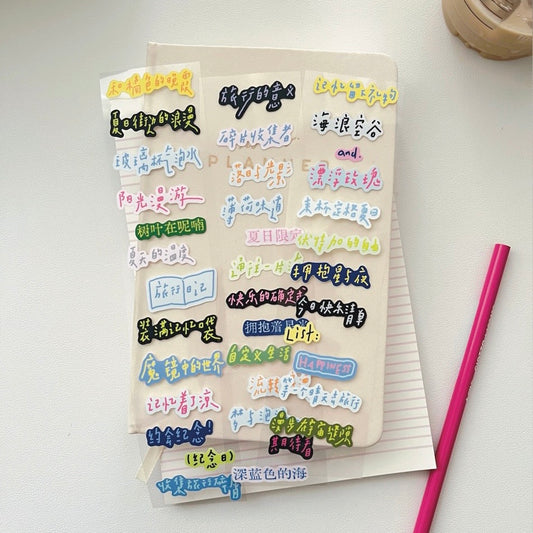 和橘色的晚霞
夏日街边的浪漫
玻璃杯气泡水
阳光漫游
树叶在呢喃
夏天的温度
旅行日记
装满记忆口袋
魔镜中的世界
记忆着了凉
约会纪念!
(纪念日)
收集旅行碎片
旅行的意义
碎片收集者
PLANNER
落日与晨
薄荷味
夏日限定
通往一片
快乐的确定
拥抱
自定义生活
流转
梦与浪
记忆留念
海浪空谷
and.
漂浮玫瑰
伏特加的自由
拥抱星与夜
今日快乐清单
List:
HAPPINESS
一个晴天去旅行
漫步在宇宙边境
其日待春
深蓝色的海